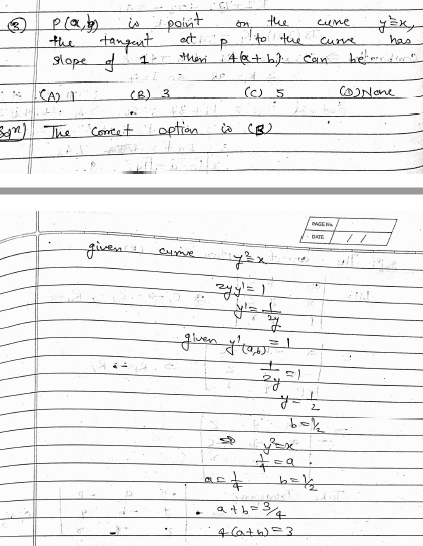 ⑧ P(a,b) is point on the curve y²=x,
the tangent at p to the curve has
slope of 1 then 4(a+b) can be
(A) 1 (B) 3 (C) 5 (D) None
Sol) The correct option is (B)
PAGE No.
DATE / /
given curve y²=x
2yy'=1
y'=1/2y
given y'(a,b) = 1
∴ 1/2y =1
y=1/2
b=1/2
⇒ y²=x
1/4=a
a=1/4 b=1/2
a+b=3/4
4(a+b)=3